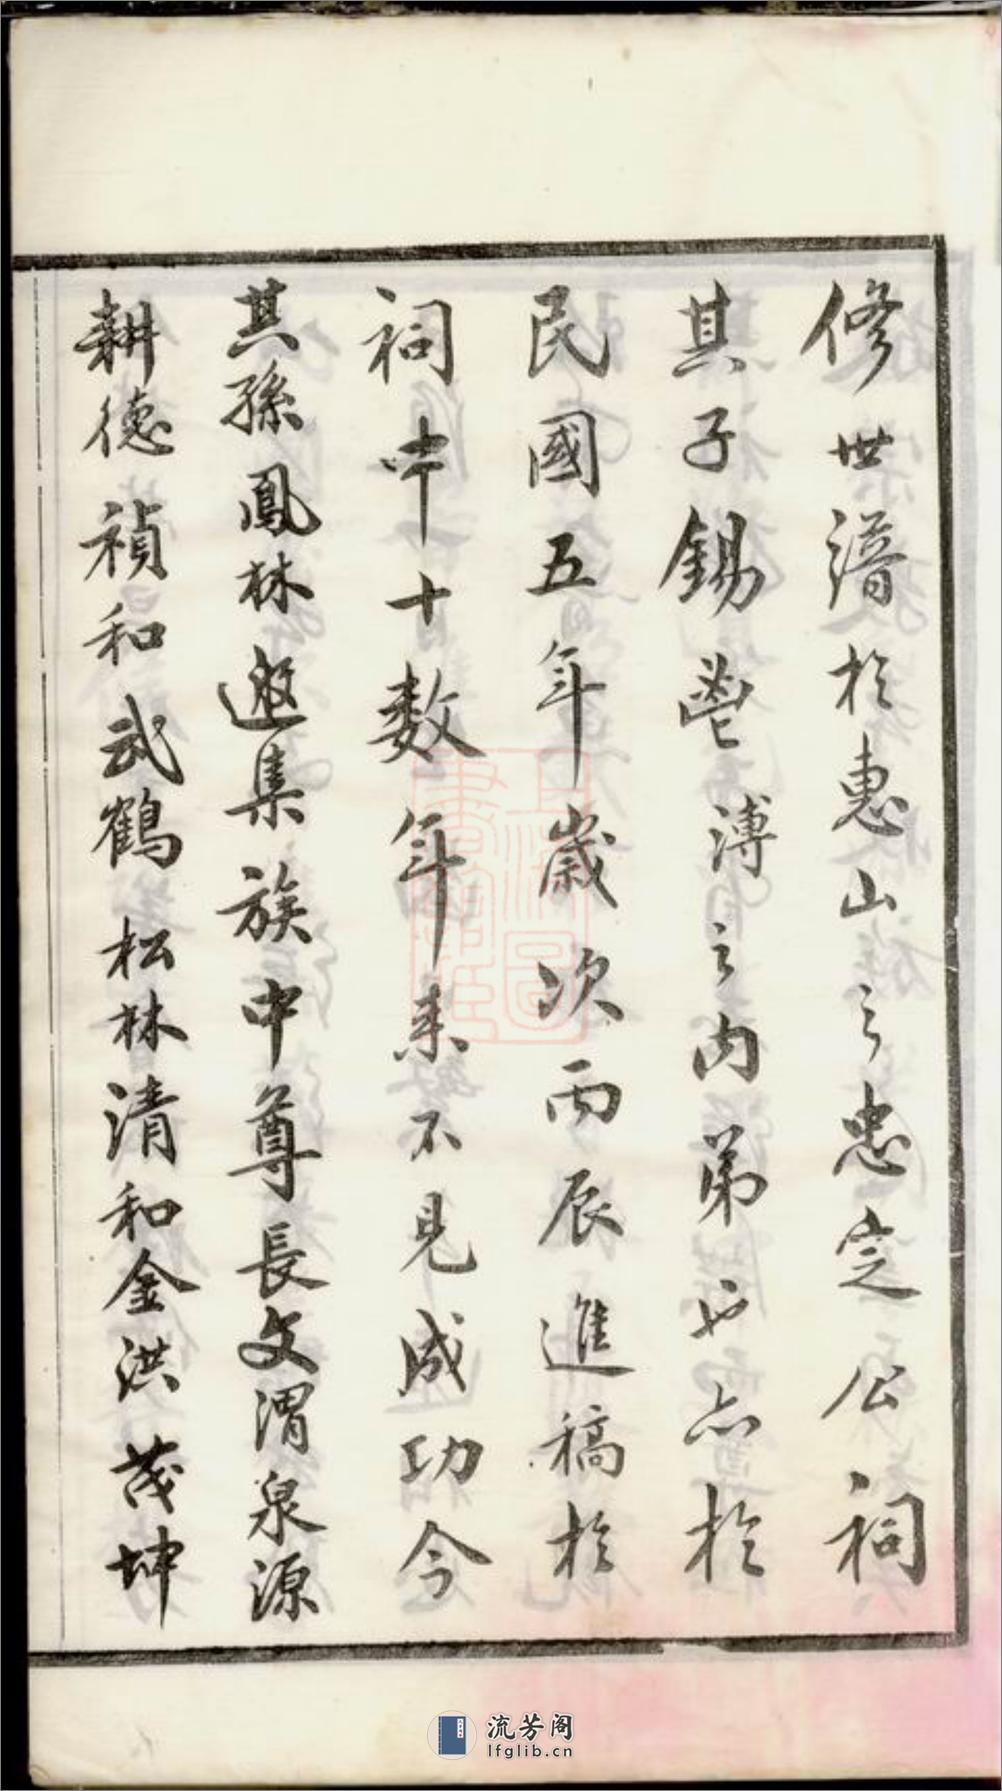 修世譜於惠山之忠定公祠
其子錫鬯溥之內弟也亦於
民國五年歲次丙辰進稿於
祠中十数年來不見成功今
其孫鳳林邀集族中尊長文渭泉源
耕德禎和武鶴松林清和金洪茂坤
流芳阁
lfglib.cn